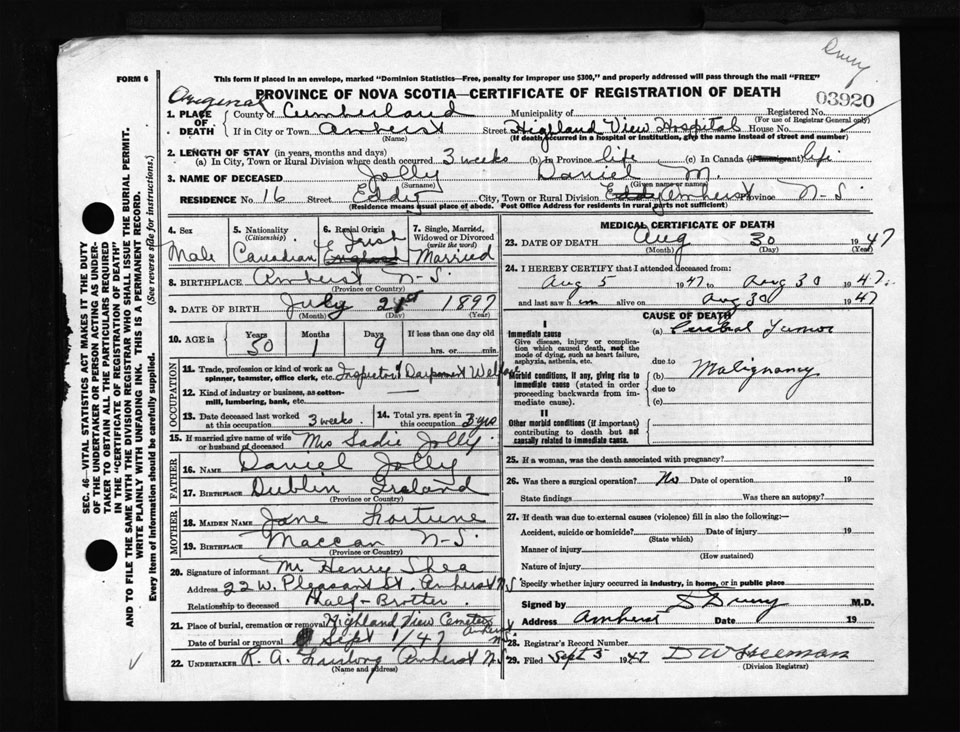 Drury
FORM 6
This form if placed in an envelope, marked "Dominion Statistics—Free, penalty for improper use $300," and properly addressed will pass through the mail "FREE"
PROVINCE OF NOVA SCOTIA—CERTIFICATE OF REGISTRATION OF DEATH
Original
03920
1. PLACE OF DEATH
County of Cumberland Municipality of Registered No.
(For use of Registrar General only)
If in City or Town Amherst Street Highland View Hospital House No.
(Name) (If death occurred in a hospital or institution, give the name instead of street and number)
2. LENGTH OF STAY (in years, months and days)
(a) In City, Town or Rural Division where death occurred 3 weeks (b) In Province life (c) In Canada (if immigrant) life
3. NAME OF DECEASED Jolly Daniel M.
(Surname) (Given name or names)
RESIDENCE No. 16 Street Eddy City, Town or Rural Division Eddy Amherst Province N.S.
(Residence means usual place of abode. Post Office Address for residents in rural parts not sufficient)
4. Sex Male
5. Nationality (Citizenship) Canadian
6. Racial Origin Irish
7. Single, Married, Widowed or Divorced (write the word) Married
8. BIRTHPLACE Amherst N.S.
(Province or Country)
9. DATE OF BIRTH July 21st 1897
(Month) (Day) (Year)
10. AGE in Years 50 Months 1 Days 9 If less than one day old
hrs. or min.
OCCUPATION
11. Trade, profession or kind of work as spinner, teamster, office clerk, etc. Inspector of Welfare
12. Kind of industry or business, as cotton-mill, lumbering, bank, etc.
13. Date deceased last worked at this occupation 3 weeks
14. Total yrs. spent in this occupation 3 yrs
15. If married give name of wife or husband of deceased Mrs Sadie Jolly
FATHER
16. NAME Daniel Jolly
17. BIRTHPLACE Dublin Ireland
(Province or Country)
MOTHER
18. MAIDEN NAME Jane Fortune
19. BIRTHPLACE Maccan N.S.
(Province or Country)
20. Signature of informant Mr Henry Shea
Address 22 W. Pleasant St. Amherst N.S.
Relationship to deceased Half-Brother
21. Place of burial, cremation or removal Highland View Cemetery Amherst N.S.
Date of burial or removal Sept 1/47
22. UNDERTAKER R. A. Furlong Amherst N.S.
(Name and address)
MEDICAL CERTIFICATE OF DEATH
23. DATE OF DEATH Aug 30 1947
(Month) (Day) (Year)
24. I HEREBY CERTIFY that I attended deceased from:
Aug 5 1947 to Aug 30 1947
and last saw him alive on Aug 30 1947
CAUSE OF DEATH
I
Immediate cause (a) Cerebral Tumor
Give disease, injury or complication which caused death, not the mode of dying, such as heart failure, asphyxia, asthenia, etc.
due to
Morbid conditions, if any, giving rise to immediate cause (stated in order proceeding backwards from immediate cause).
(b) Malignancy
due to
(c)
II
Other morbid conditions (if important) contributing to death but not causally related to immediate cause.
25. If a woman, was the death associated with pregnancy?
26. Was there a surgical operation? No Date of operation 19
State findings Was there an autopsy?
27. If death was due to external causes (violence) fill in also the following:—
Accident, suicide or homicide? Date of injury 19
(State which)
Manner of injury
(How sustained)
Nature of injury
Specify whether injury occurred in industry, in home, or in public place
Signed by S Drury M.D.
Address Amherst Date 19
28. Registrar's Record Number
29. Filed Sept 5 1947
(Division Registrar)
SEC. 46—VITAL STATISTICS ACT MAKES IT THE DUTY
OF THE UNDERTAKER OR PERSON ACTING AS UNDER-
TAKER TO OBTAIN ALL THE PARTICULARS REQUIRED
IN THE "CERTIFICATE OF REGISTRATION OF DEATH"
AND TO FILE THE SAME WITH THE DIVISION REGISTRAR WHO SHALL ISSUE THE BURIAL PERMIT.
WRITE PLAINLY WITH UNFADING INK. THIS IS A PERMANENT RECORD.
Every item of information should be carefully supplied. (See reverse side for instructions.)